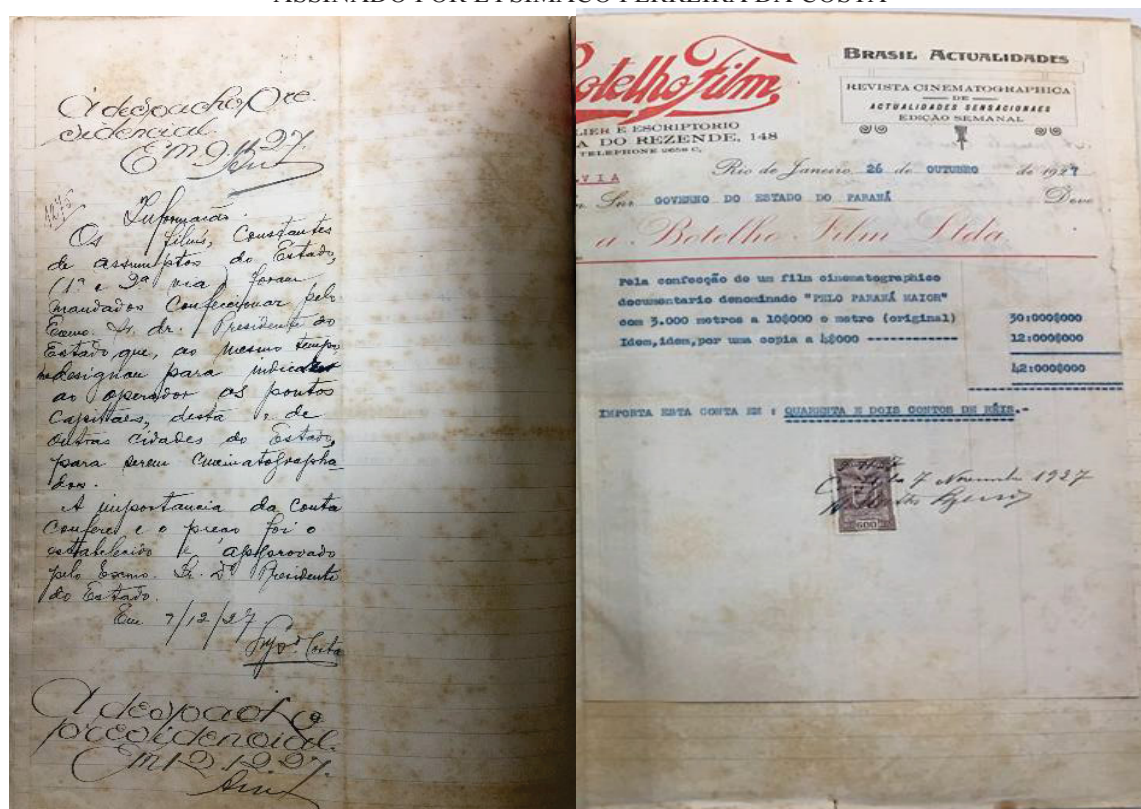 ASSINADO POR LYSIMACO FERREIRA DA COSTA
Á despacho Pre
sidencial.
Em 9 12 27.
Informação.
Os films, constantes
de assumptos do Estado,
(1ª e 2ª via) foram
mandados confeccionar pelo
Exmo. Sr. dr. Presidente do
Estado que, ao mesmo tempo,
designou para indicar
ao operador os pontos
capitáes, desta e de
outras cidades do Estado,
para serem cinematographa
dos.
A importancia da conta
confere e o preço foi o
estabelecido e approvado
pelo Exmo. Sr. Dr. Presidente
do Estado.
Em 7/12/27
Lysº Costa
Á despacho
presidencial.
Em 12 12 27.
Botelho Film
LIER E ESCRIPTORIO
A DO REZENDE, 148
TELEPHONE 2658 C.
BRASIL ACTUALIDADES
REVISTA CINEMATOGRAPHICA
DE
ACTUALIDADES SENSACIONAES
EDICÃO SEMANAL
VIA
Rio de Janeiro, 26 de OUTUBRO de 1927
Snr. GOVERNO DO ESTADO DO PARANÁ Deve
a Botelho Film Ltda.
Pela confecção de um film cinematographico
documentario denominado "PELO PARANÁ MAIOR"
com 3.000 metros a 10$000 o metro (original) 30:000$000
Idem,idem,por uma copia a 4$000 ----------- 12:000$000
42:000$000
IMPORTA ESTA CONTA EM : QUARENTA E DOIS CONTOS DE RÉIS.-
7 Novembro 1927
600